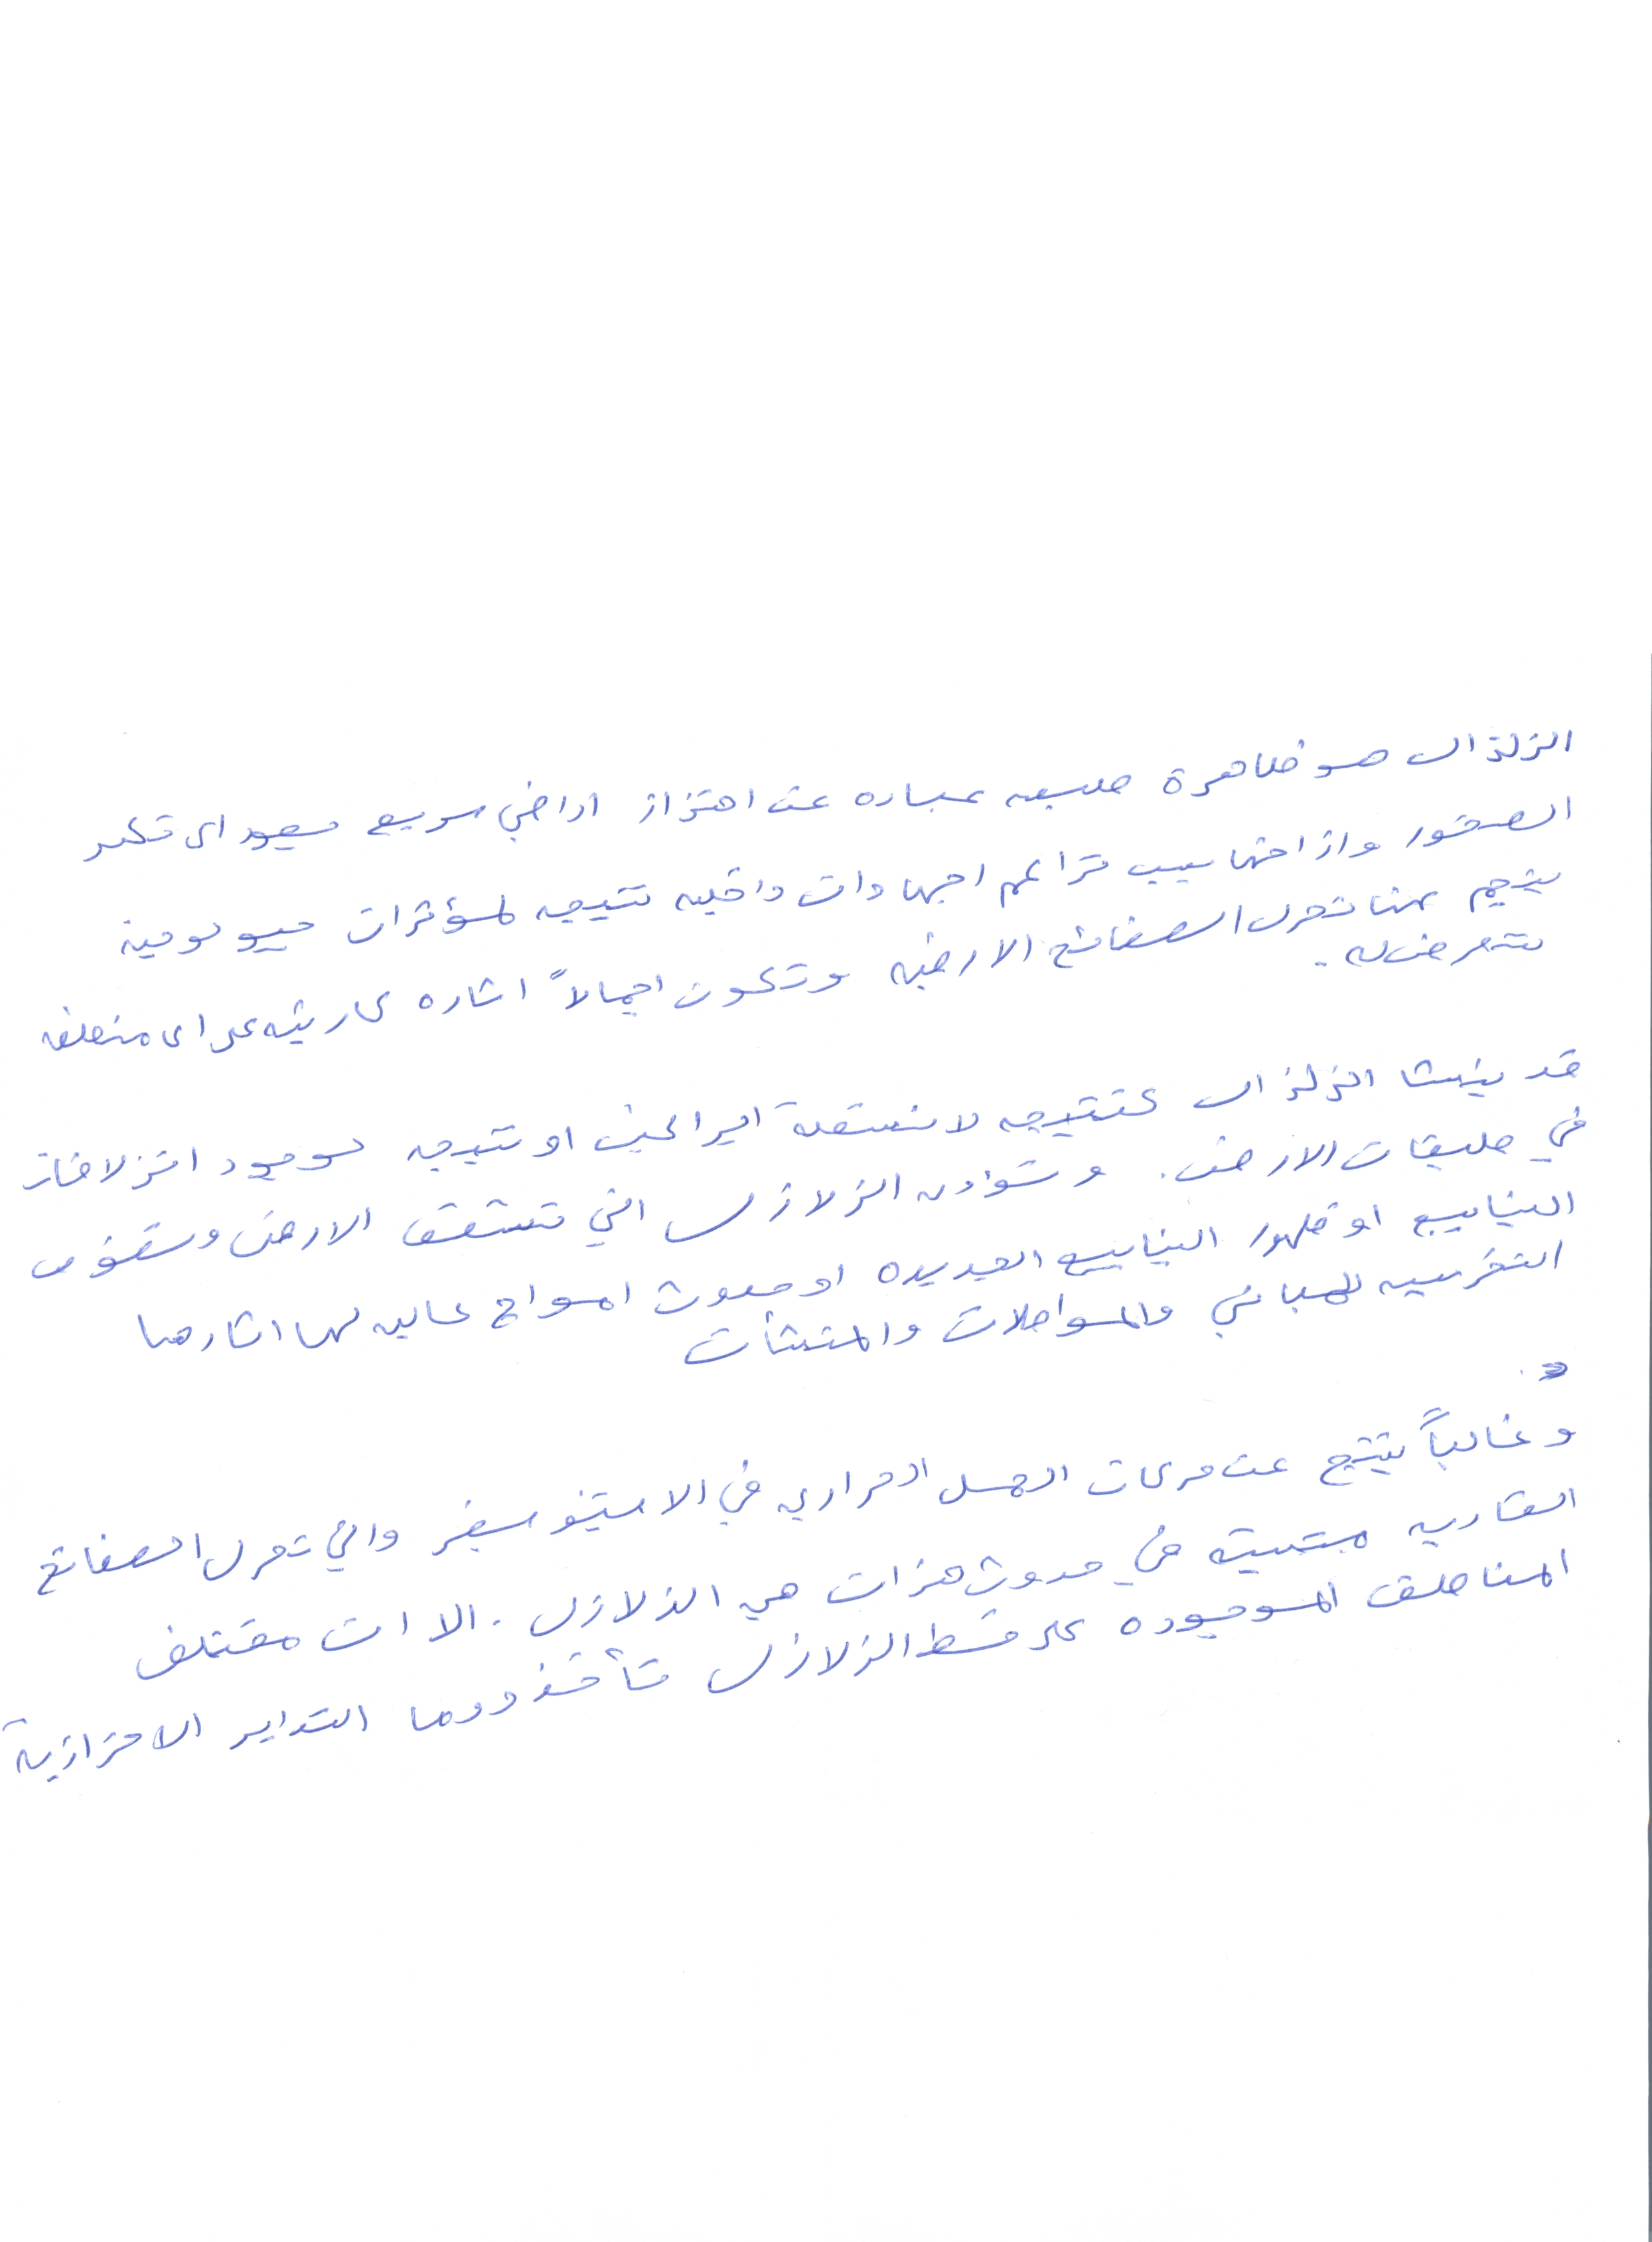 الزلزال هو ظاهرة طبيعه عباره عن اهتزاز اراضي سريع يعود الى تكسر
الصخور وازاحتها بسبب تراكم اجهادات داخليه نتيجه لمؤثرات جيولوجية
ينجم عنها تحرك الصفائح الارضيه وتكون اجمالاً اثاره كارثيه على اى منطقه
تتعرض له.
قد ينشا الزلزال كنتيجه لانشطة البراكين او نتيجه لوجود انزلاقات
في طبقات الارض. وتؤدى الزلازل الي تشقق الارض ونضوب
الينابيع او ظهور الينابيع الجديده او حدوث امواج عاليه لها اثارها
التخريبيه للمباني والمواصلات والمنشأت
وغالباً ينتج عن حركات الحمل الحراري في الاستينوسفير والتي تحرك الصفائح
القاريه متسببة في حدوث هزات هي الزلازل. الا ان مختلف
المناطق الموجوده على خط الزلازل تأخذ دوما التدابير الاحترازية